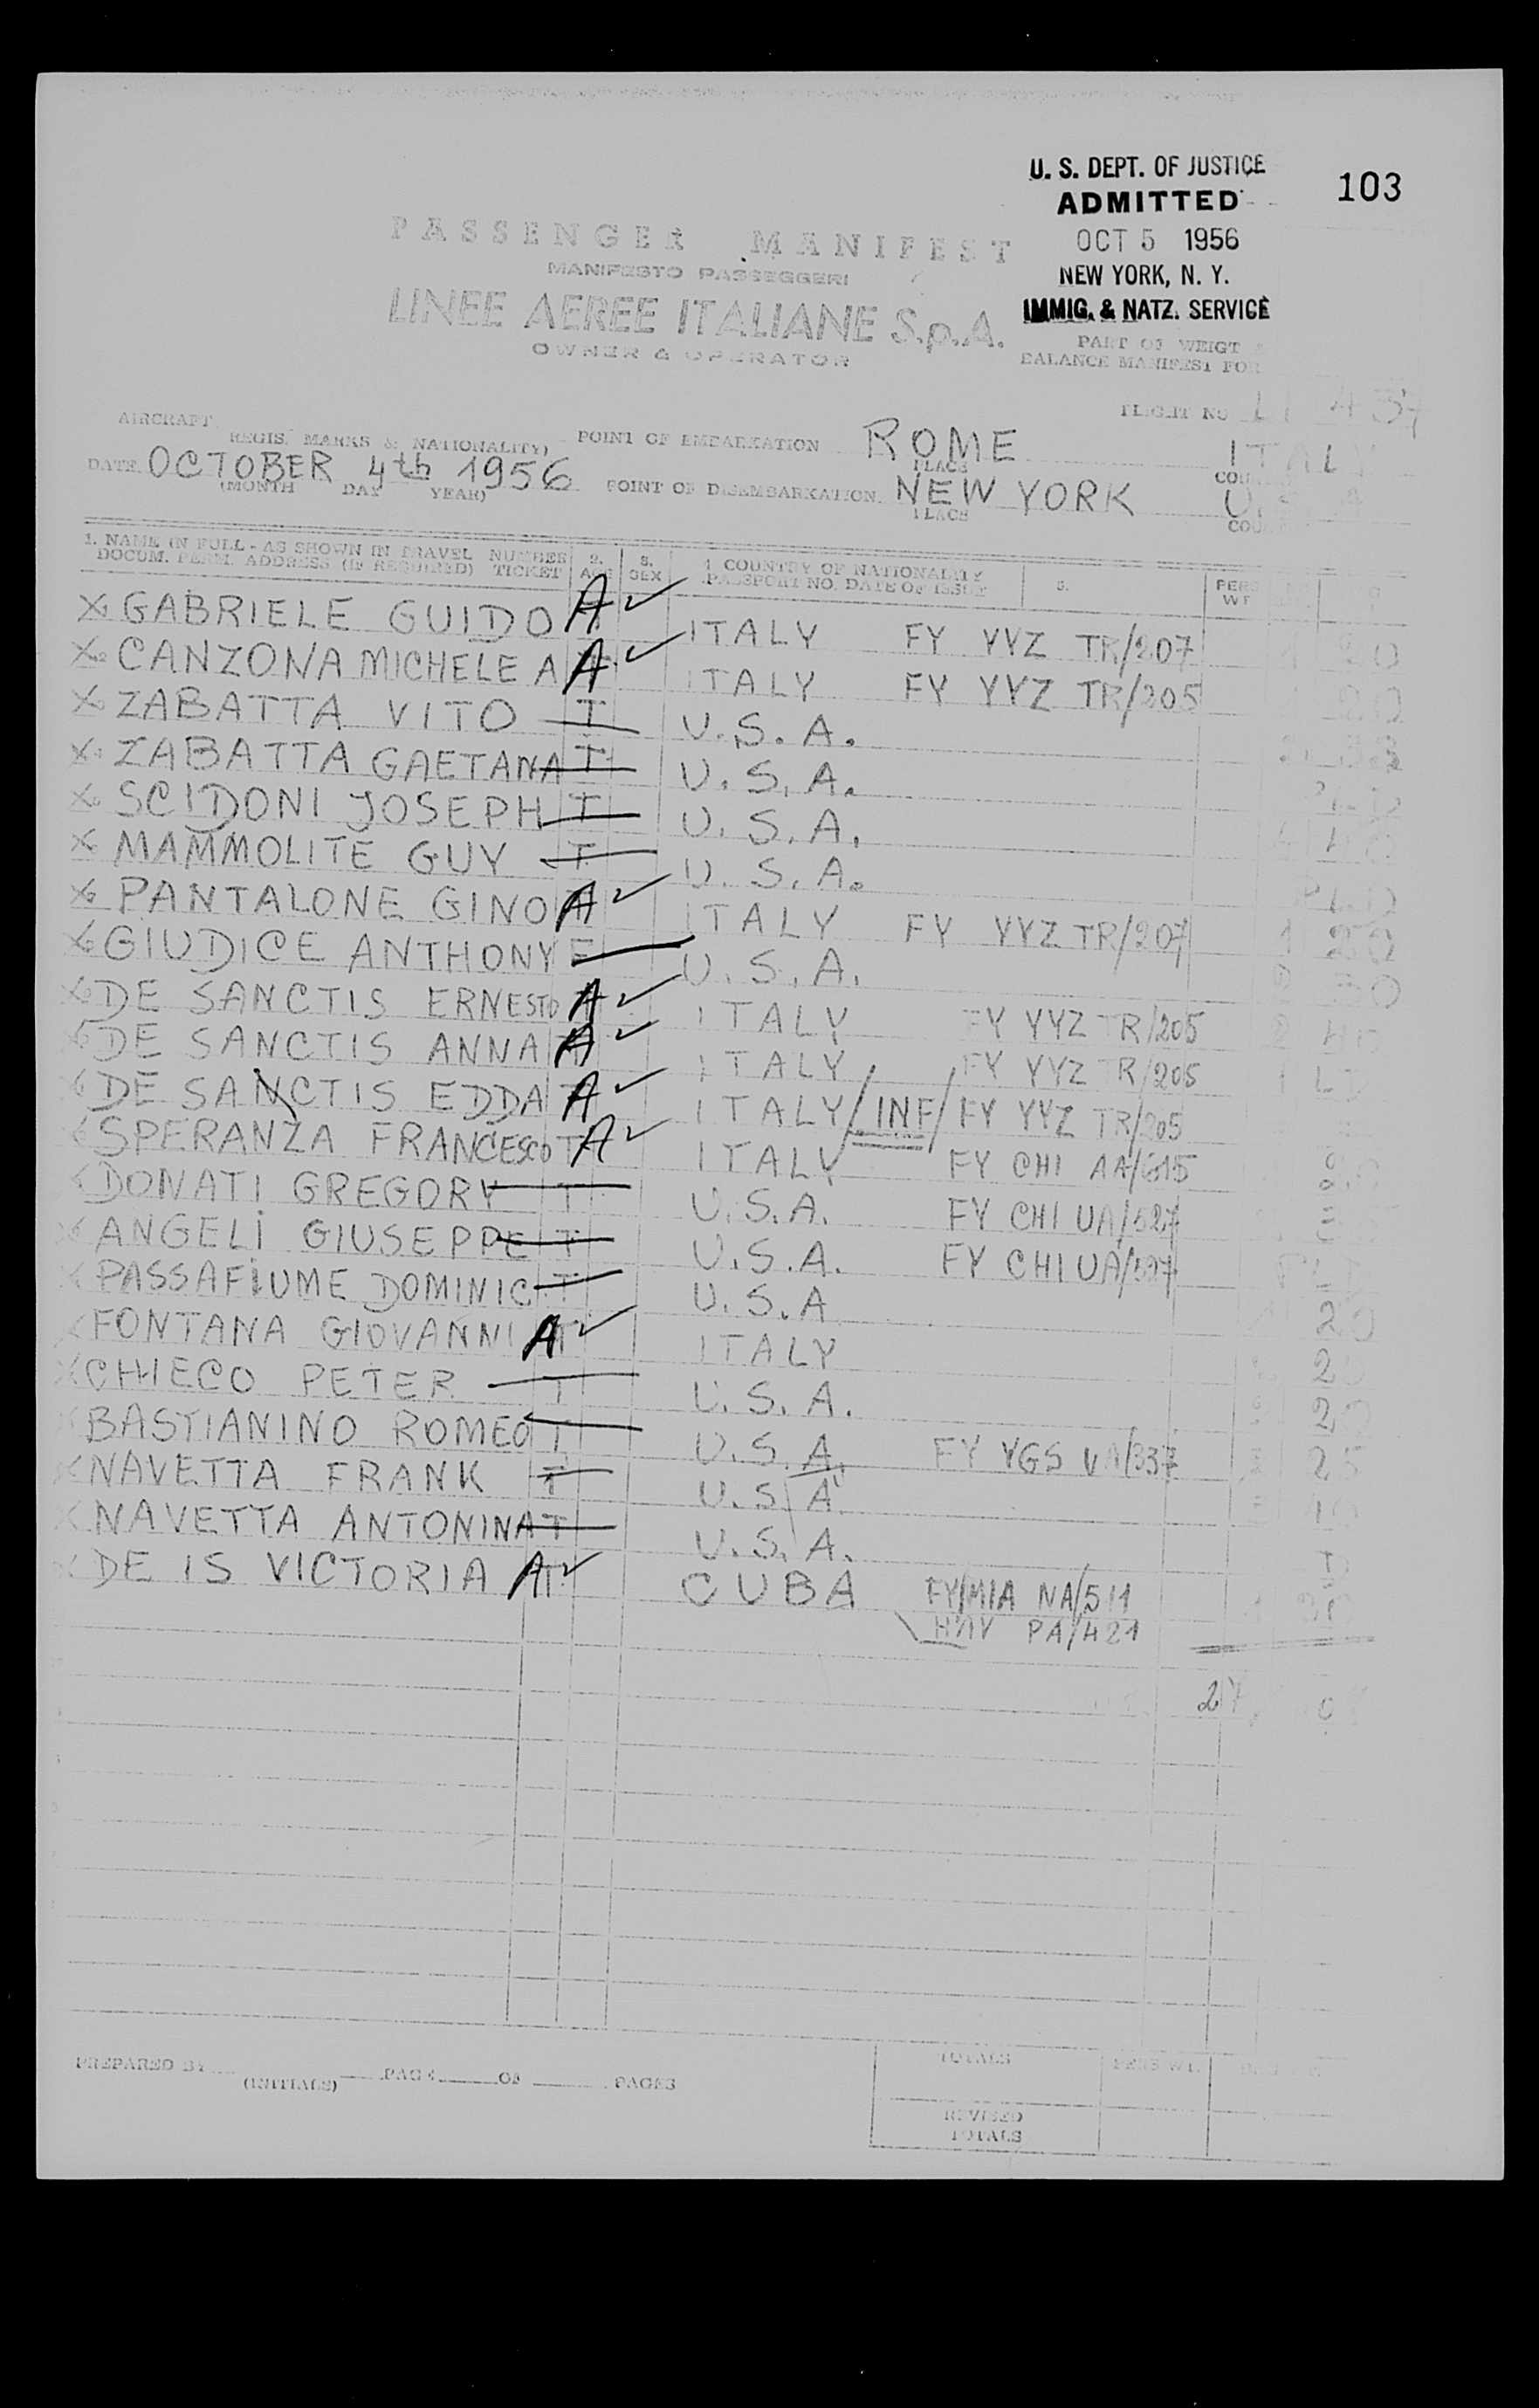 U. S. DEPT. OF JUSTICE
ADMITTED
103
OCT 5 1956
NEW YORK, N. Y.
IMMIG. & NATZ. SERVICE
PASSENGER MANIFEST
MANIFESTO PASSEGGERI
LINEE AEREE ITALIANE S.p.A.
OWNER & OPERATOR
PART OF WEIGT
BALANCE MANIFEST FOR
FLIGHT NO
AIRCRAFT
REGIS. MARKS & NATIONALITY)
POINT OF EMBARKATION ROME
PLACE
DATE OCTOBER 4th 1956
(MONTH DAY YEAR)
POINT OF DISEMBARKATION NEW YORK
PLACE
1. NAME IN FULL - AS SHOWN IN TRAVEL NUMBER 2. 3. 4. COUNTRY OF NATIONALITY 5. PERS
DOCUM. PERM. ADDRESS (IF REQUIRED) TICKET AGE SEX PASSPORT NO. DATE OF ISSUE WT
X GABRIELE GUIDO A ✓ ITALY FY YYZ TR/207
X CANZONA MICHELE A A ✓ ITALY FY YYZ TR/205
X ZABATTA VITO T U.S.A.
X ZABATTA GAETANA T U.S.A.
X SCIDONI JOSEPH T U.S.A.
X MAMMOLITE GUY T U.S.A.
X PANTALONE GINO A ✓ ITALY FY YYZ TR/207
X GIUDICE ANTHONY U.S.A.
X DE SANCTIS ERNESTO A ✓ ITALY FY YYZ TR/205
DE SANCTIS ANNA A ✓ ITALY FY YYZ TR/205
DE SANCTIS EDDA A ✓ ITALY/INF/FY YYZ TR/205
SPERANZA FRANCESCO T A ✓ ITALY FY CHI AA/615
DONATI GREGORY T U.S.A. FY CHI UA/527
ANGELI GIUSEPPE T U.S.A. FY CHI UA/527
PASSAFIUME DOMINIC T U.S.A
FONTANA GIOVANNI A ✓ ITALY
X CHIECO PETER T U.S.A.
BASTIANINO ROMEO T U.S.A. FY YGS
NAVETTA FRANK T U.S.A
NAVETTA ANTONINA T U.S.A.
DE IS VICTORIA A ✓ CUBA FY/MIA NA/511
HAV PA/421
PREPARED BY
(INITIALS)
PAGE OF PAGES
TOTALS
PERS WT.
REVISED
TOTALS